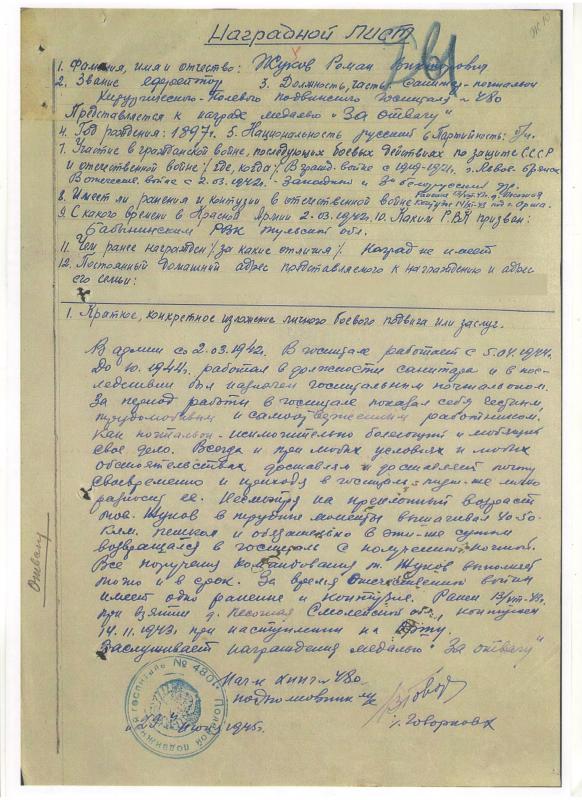 Наградной лист
1. Фамилия, имя и отчество: Жуков Роман
2. Звание ефрейтор 3. Должность, часть: Санитар-почтальон
Хирургического Полевого подвижного госпиталя № 480
Представляется к награде медалью "За отвагу"
4. Год рождения: 1897г. 5. Национальность русский 6 Партийность:
7. Участие в гражданской войне, последующих боевых действиях по защите СССР
и отечественной войне / где, когда / В гражд. войне с 1919-1921г.
В отечествен. войне с 2.03.1942г. - Западный и 3й белорусский фр.
8. Имеет ли ранения и контузии в отечественной войне
9. С какого времени в Красной Армии 2.03.1942г. 10. Каким РВК призван:
Бабынинским РВК Тульской обл.
11. Чем ранее награжден / за какие отличия /. Наград не имеет
12. Постоянный домашний адрес представляемого к награждению и адрес
его семьи:
1. Краткое, конкретное изложение личного боевого подвига или заслуг.
В армии с 2.03.1942г. В госпитале работает с 5.04.1944г.
До 10.1944г. работал в должности санитара и в пос-
ледствии был назначен госпитальным почтальоном.
За период работы в госпитале показал себя честным,
трудолюбивым и самоотверженным работником.
Как почтальон - исключительно болеющий и любящий
свое дело. Всегда и при любых условиях и любых
обстоятельствах доставлял и доставляет почту
своевременно и приходя в госпиталь - тут же лично
разносит ее. Несмотря на преклонный возраст
тов. Жуков в трудные моменты вышагивал 40-50-
клм. пешком и обязательно в эти-же сутки
возвращался в госпиталь с полученной почтой.
Все поручения командования т. Жуков выполняет
точно и в срок. За время Отечественной войны
имеет одно ранение и контузию. Ранен 13/VIII-43г.
при взятии д. Песочная Смоленской обл. контужен
14.11.1943г при наступлении на Оршу.
Заслуживает награждения медалью "За отвагу"
Нач-к ХППГ № 480
подполковник м/с
/. Говорков
1945г.
Полевой подвижной госпиталь № 480
Отвагу